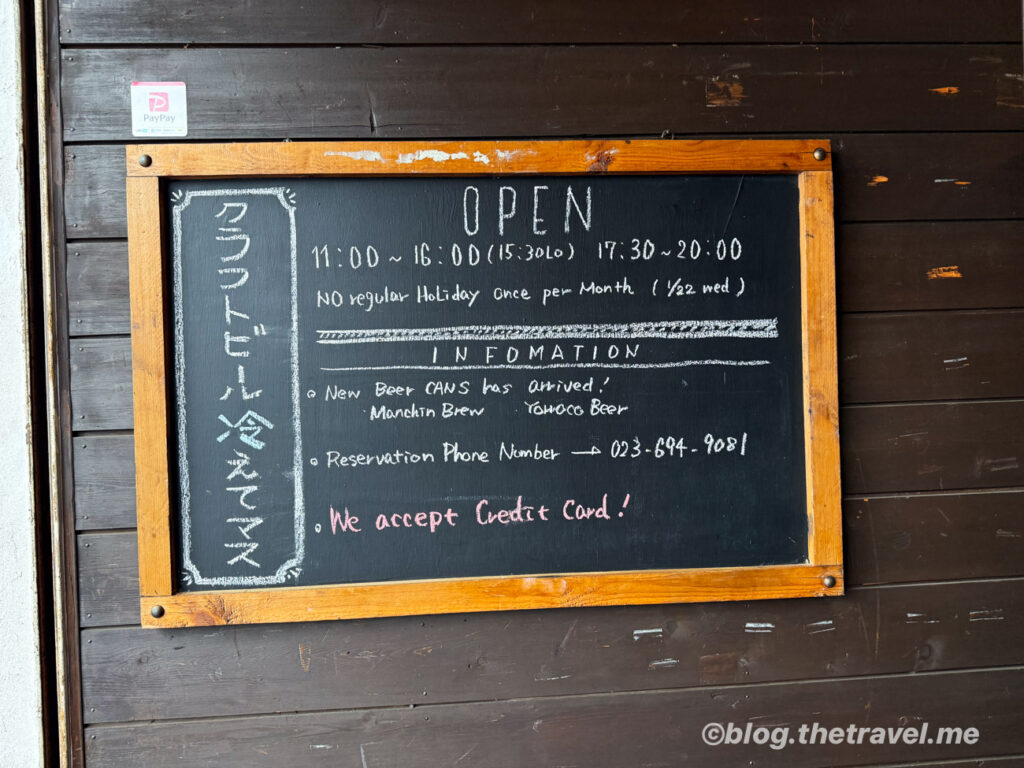 PayPay
クラフトビール冷えてマス
OPEN
11:00~16:00(15:30LO) 17:30~20:00
NO regular Holiday once per Month (1/22 wed)
INFOMATION
New Beer CANS has arrived!
Manchin Brew Beer
Reservation Phone Number → 023-694-9081
We accept Credit Card!
©blog.thetravel.me